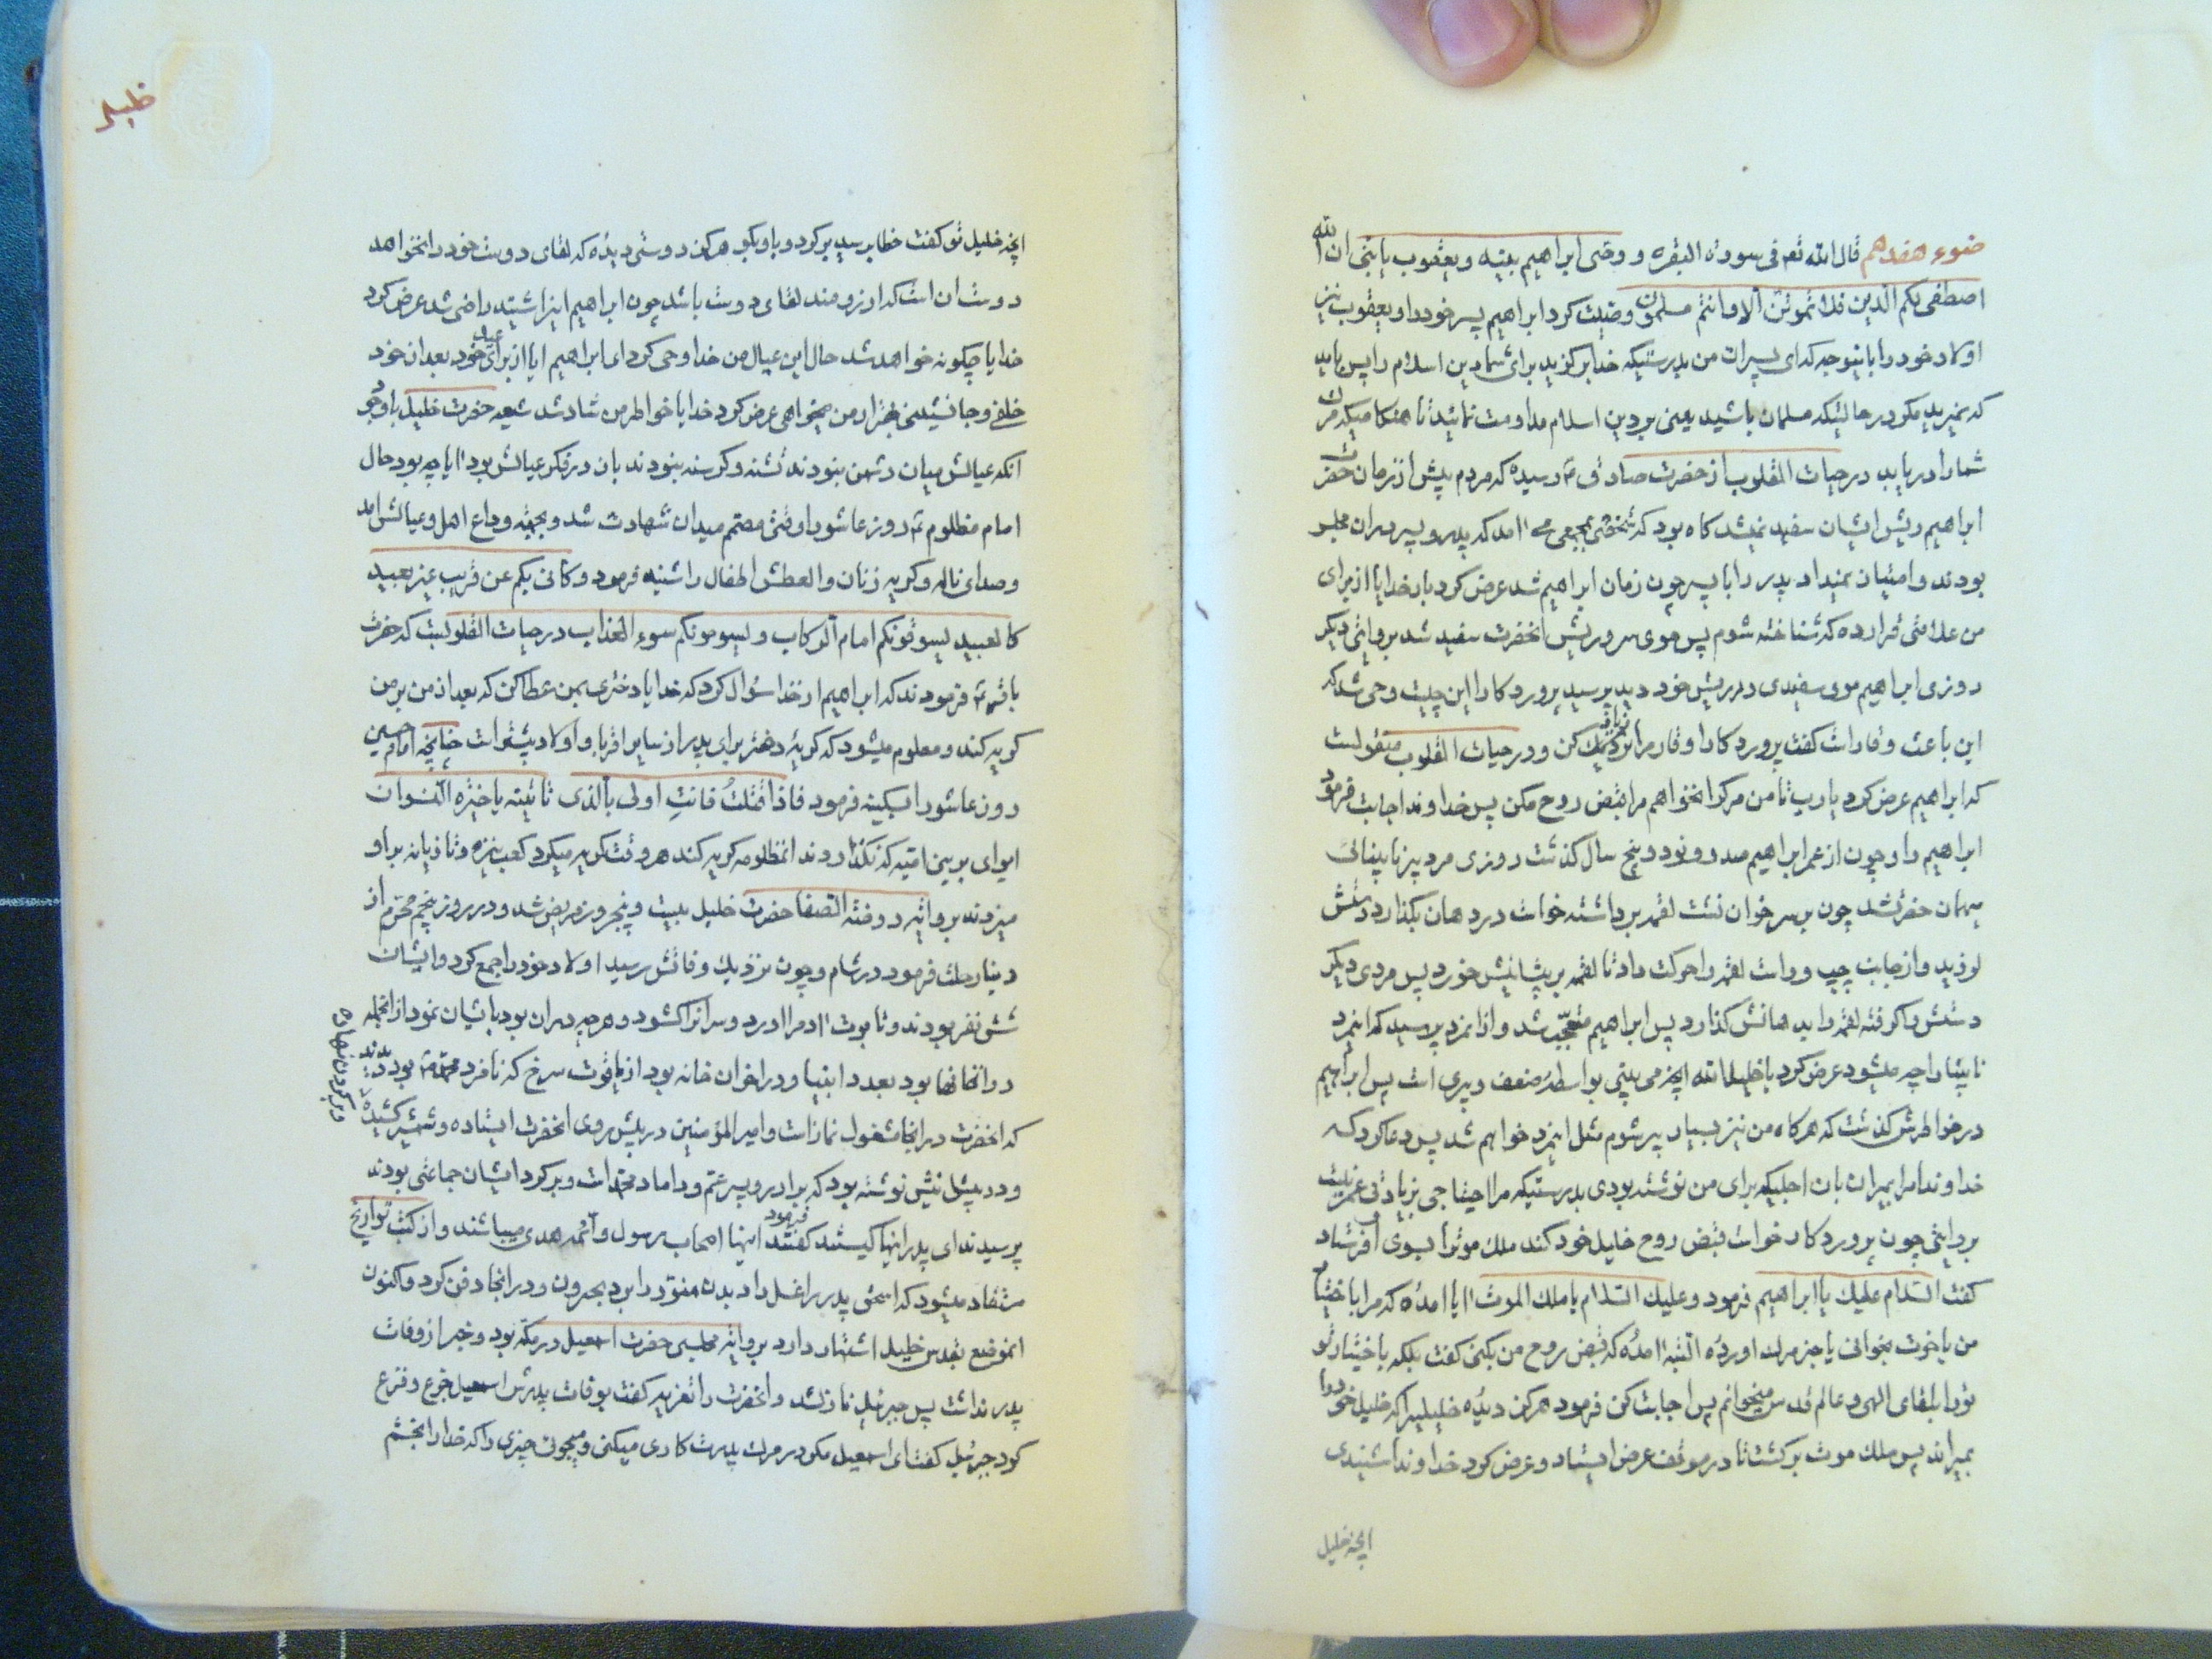 ضوء هفدهم قال الله تعم فی سورة البقره و وصی ابراهیم بنیه و یعقوب یا بنی ان الله
اصطفی لکم الدین فلا تموتن الا و انتم مسلمون وصیت کرد ابراهیم پسر خود را و یعقوب نیز
اولاد خود را باینوجه که ای پسران من بدرستیکه خدا برگزید برای شما دین اسلام را پس باید
که نمیرید مگر در حالتیکه مسلمان باشید یعنی بر دین اسلام مداومت نمائید تا هنگامیکه مرک
شما را دریابد در حیات القلوب از حضرت صادق ع رسیده که مردم پیش از زمان حضرت
ابراهیم ریش ایشان سفید نمیشد کاه بود که شخصی بمجمعی می امد که پدر و پسر دران مجلس
بودند و امتیان نمیداد پدر را با پسر چون زمان ابراهیم شد عرض کرد بار خدایا از برای
من علامتی قرار ده که شناخته شوم پس موی سر و ریش انحضرت سفید شد بروایتی دیکر
روزی ابراهیم موی سفیدی در ریش خود دید پرسید پروردکارا این چیست وحی شد که
این باعث وقار است کفت پروردکارا وقار مرا زیاده کن و در حیات القلوب منقولست
که ابراهیم عرض کرد یا رب تا من مرک را نخواهم مرا قبض روح مکن پس خداوند اجابت فرمود
ابراهیم را و چون از عمر ابراهیم صد و نود و پنج سال کذشت روزی مرد پیر نابینائی
مهمان حضرتشد چون بر سر خوان نشت لقمه برداشته خواست در دهان بکذارد دستش
لرزید و از جانب چپ و راست لقمه را حرکت داد تا لقمه بر پیشانیش خورد پس مردی دیکر
دستش را کرفته لقمه را بدهانش کذارد پس ابراهیم متعجب شد و از انمرد پرسید که اینمرد
نابینا را چه میشود عرض کرد یا خلیل الله انچه می بینی بواسطه ضعف و پیری است پس ابراهیم
در خواطرش کذشت که هرکاه من نیز بسیار پیر شوم مثل اینمرد خواهم شد پس دعا کرد که
خداوندا مرا بمیران بان اجلیکه برای من نوشته بودی بدرستیکه مرا احتیاجی بزیادتی عمر نیست
بروایتی چون پروردکار خواست قبض روح خلیل خود کند ملک موترا بسوی او فرستاد
کفت السلام علیک یا ابراهیم فرمود و علیک السلام یا ملک الموت ایا امده که مرا باختیار
من باخرت بخوانی یا خبر مرک اورده البته امده که قبض روح من بکنی کفت بلکه باختیار تو
تورا بلقای الهی و عالم قدس میخوانم پس اجابت کن فرمود هرکز دیده خلیلیرا که خلیل خود را
بمیراند پس ملک موت برکشت تا در موقف عرض ایستاد و عرض کرد خداوندا شنیدی
انچه خلیل
خلیل
انچه خلیل تو کفت خطاب رسید برکرد و باو بکو هرکز دوستی دیده که لقای دوست خود را نخواهد
دوست ان است که ارزومند لقای دوست باشد چون ابراهیم اینرا شنید راضی شد عرض کرد
خدایا چکونه خواهد شد حال این عیال من خدا وحی کرد ای ابراهیم ایا از برای عیال خود بعد از خود
خلفی و جانشینی بهتر از من میخواهی عرض کرد خدایا خواطر من شاد شد شیعه حضرت خلیل با وجود
انکه عیالش میان دشمن نبودند تشنه و کرسنه نبودند بان در فکر عیالش بود ایا چه بود حال
امام مظلوم ع روز عاشورا وقتی مصتم میدان شهادت شد و بجهته وداع اهل و عیالش امد
و صدای ناله و کریه زنان و العطش اطفال را شنید فرمود و کانی بکم عن قریب غیر بعید
کالعبید یسوقونکم امام الرکاب و یسومونکم سوء العذاب در حیات القلوبست که حضرت
باقر ع فرمودند که ابراهیم از خدا سئوال کرد که خدایا دختری بمن عطا کن که بعد از من بر من
کریه کند و معلوم میشود که کریه دختر برای پدر از سایر اقربا و اولاد بیشتر است چنانچه امام حسین
روز عاشورا بسکینه فرمود فاذا قتلت فانت اولی بالذی تأتینه یا خیرة النسوان
ایوای بر بنی امیه که نکذاردند انمظلومه کریه کند هر وقت کریه میکرد کعب نیزه و تازیانه بر او
میزدند بروایه روضة الصفا حضرت خلیل بیست و پنجروز مریض شد و در روز پنجم محرم از
دینار حلت فرمود در شام و چون نزدیک وفاتش رسید اولاد خود را جمع کرد و ایشان
شش نفر بودند و تابوت ادم را اورد و سر انرا کشود و هر چه دران بود بایشان نمود از انجمله
در انخانها بود بعدد انبیا و در اخر ان خانه بود از یاقوت سرخ که نامزد محمد ع بود دیدند
که انحضرت در انجا مشغول نماز است و امیر المؤمنین در پیش روی انحضرت ایستاده و شمشیر کشیده
و بر کردن نهاده
و در پیش نیش نوشته بود که برادر و پسر عم و داماد محمد است و بر کرد ایشان جماعتی بودند
پرسیدند ای پدر اینها کیستند فرمود اینها اصحاب رسول و ائمه هدی میباشند و از کتب تواریخ
مستفاد میشود که اسحق پدر را غسل داد بدن منور را برد بحبرون و در انجا دفن کرد و اکنون
انموضع بقدس خلیل اشتهار دارد بروایه مجلسی حضرت اسمعیل در مکه بود و خبر از وفات
پدر نداشت پس جبرئیل نازلشد و انحضرت را تعزیه کفت بوفات پدرش اسمعیل جزع و فزع
کرد جبرئیل کفت ای اسمعیل مکو در مرک پدرت کاری میکنی و میجون چیزی را که خدا را بخشم